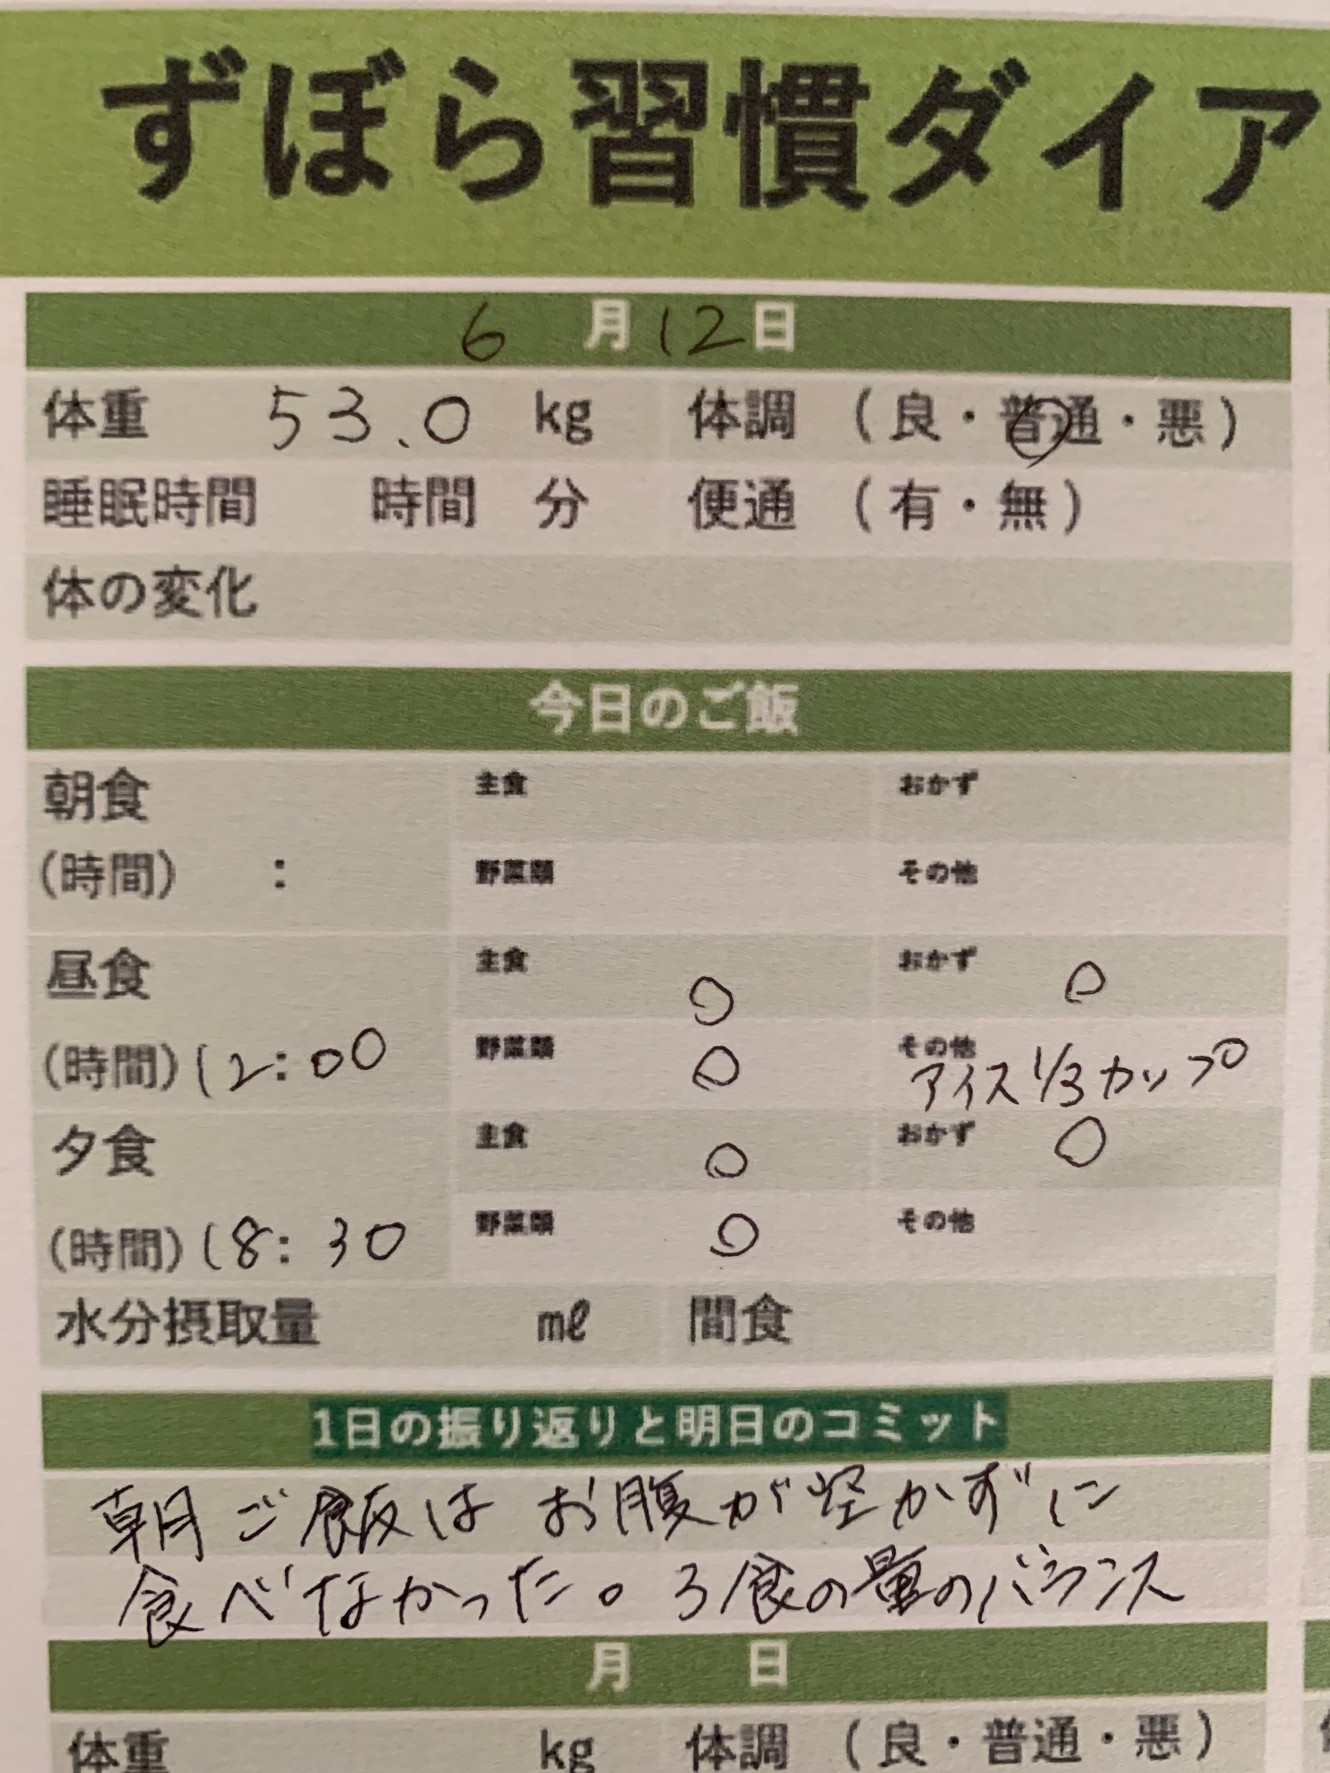 ずぼら習慣ダイア
6月12日
体重 53.0 kg 体調 (良・普通・悪)
睡眠時間 時間 分 便通 (有・無)
体の変化
今日のご飯
朝食 主食 おかず
(時間) : 野菜類 その他
昼食 主食 ○ おかず ○
(時間) 12:00 野菜類 ○ その他 アイス1/3カップ
夕食 主食 ○ おかず ○
(時間) 18:30 野菜類 ○ その他
水分摂取量 ㎖ 間食
1日の振り返りと明日のコミット
朝ご飯はお腹が空かずに
食べなかった。3食の量のバランス
月 日
体重 kg 体調 (良・普通・悪)